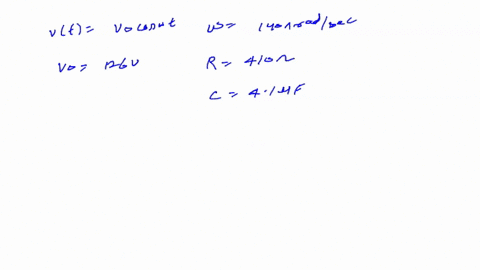 v(t) = v0 cos ωt ω = 140π rad/sec
v0 = 126v R = 410Ω
C = 4.1μF